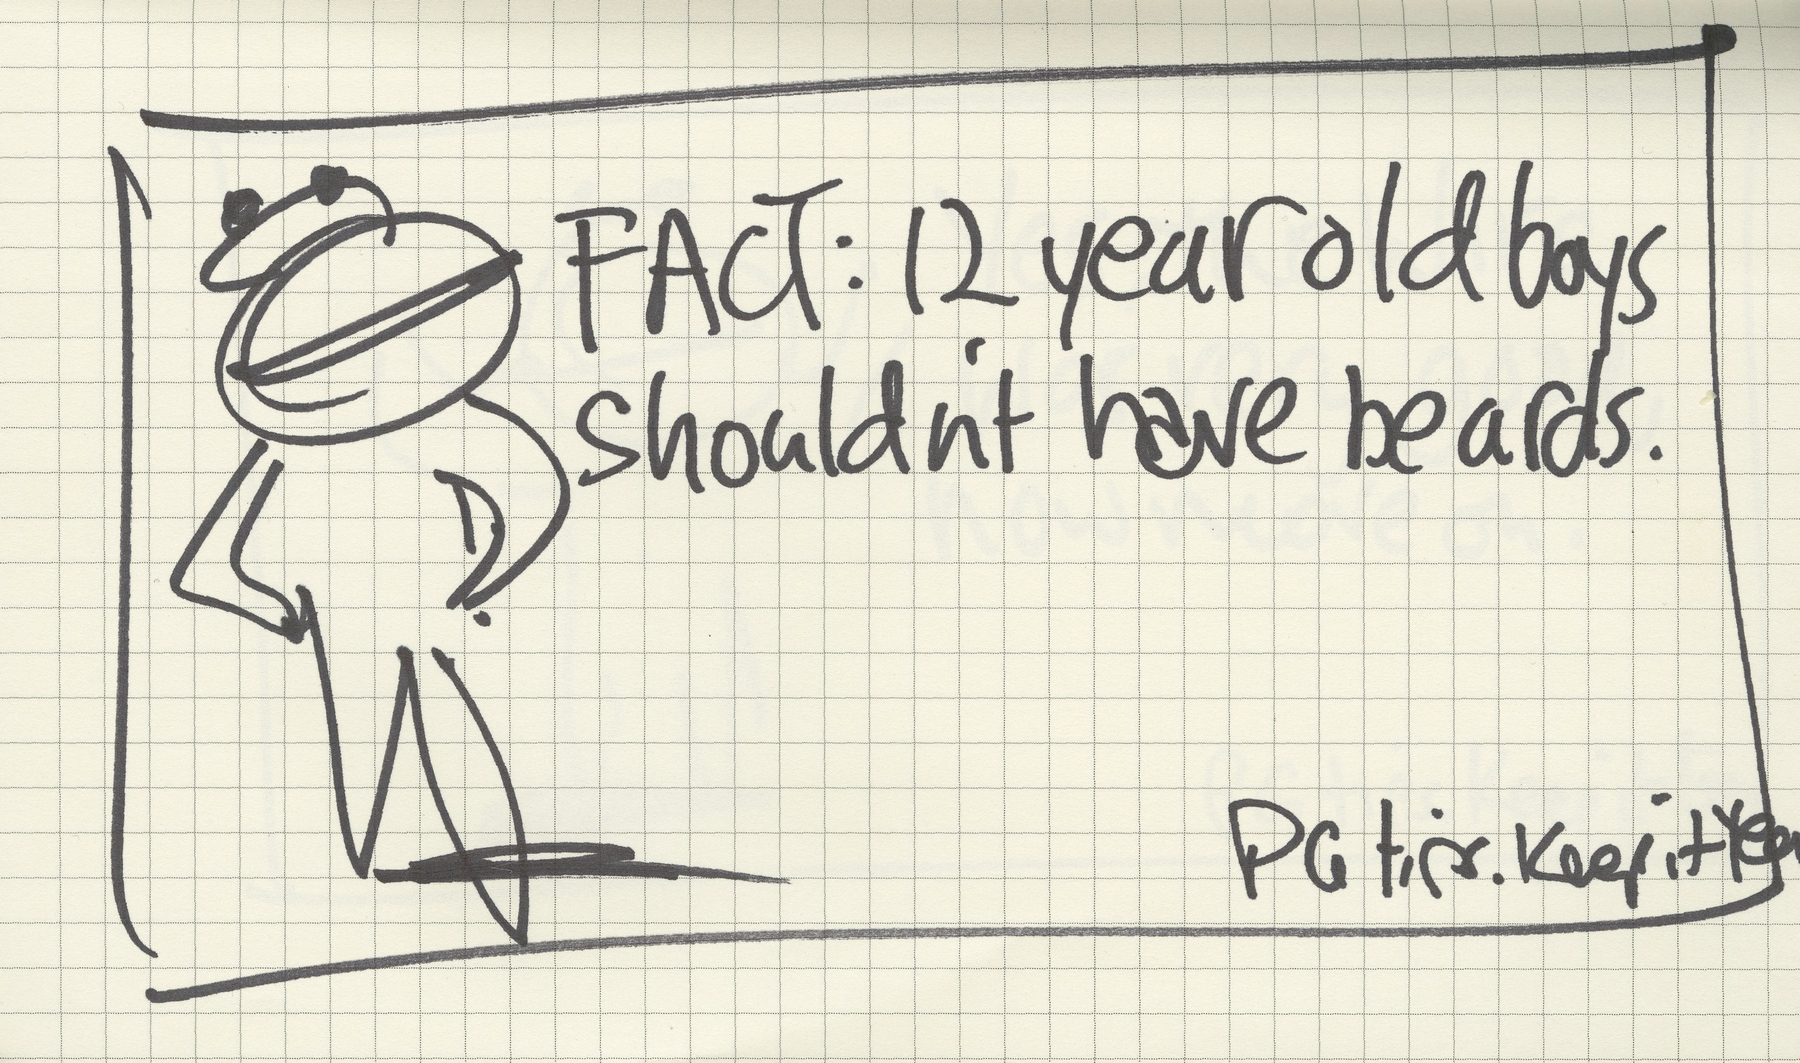 FACT: 12 year old boys
shouldn't have beards.
PG tips. Keep it